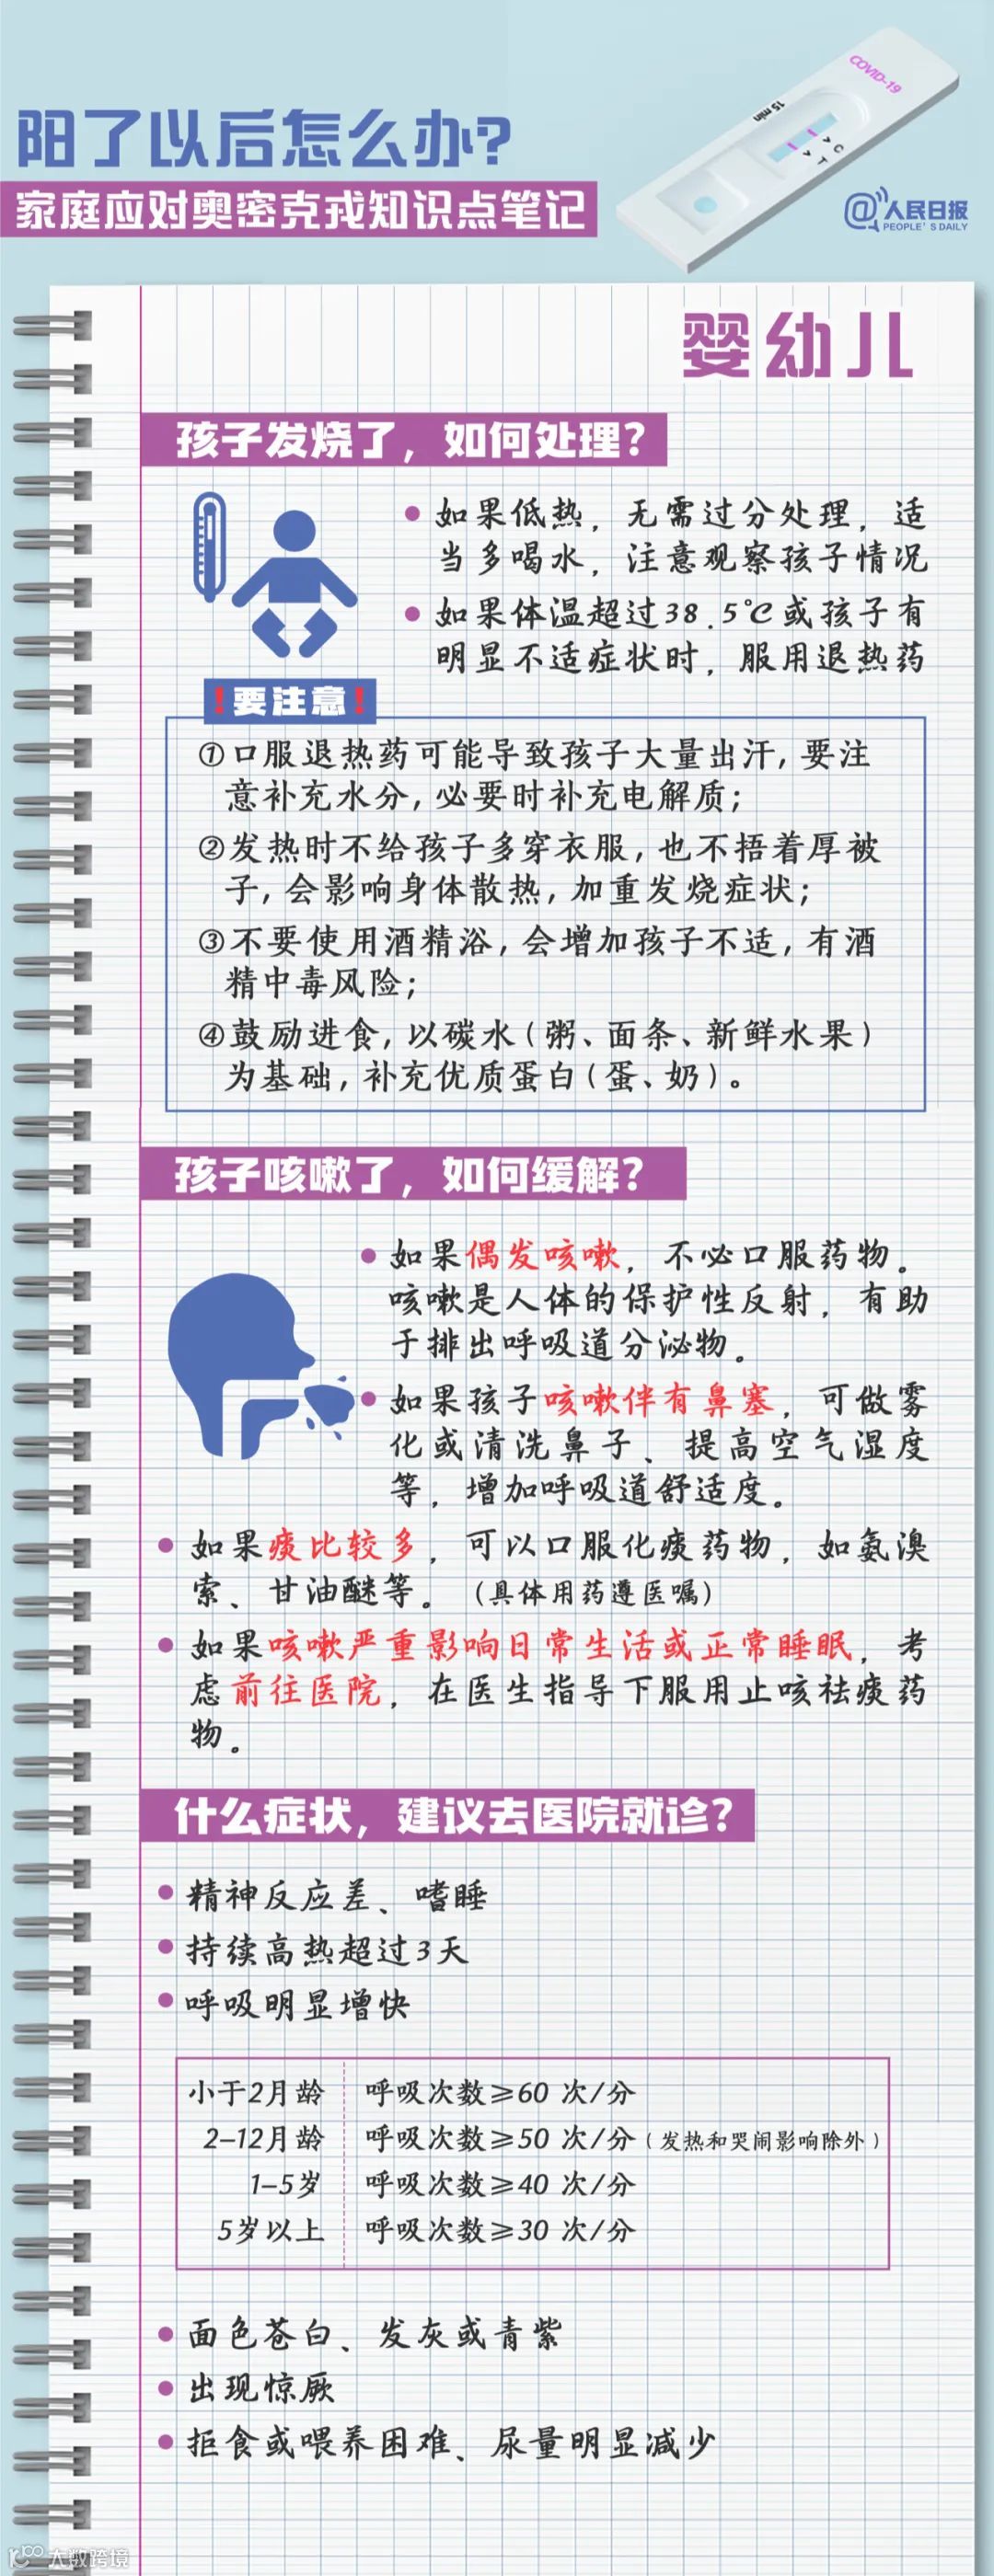 COVID-19
15 min
C
T
阳了以后怎么办?
家庭应对奥密克戎知识点笔记
@人民日报
PEOPLE'S DAILY
婴幼儿
孩子发烧了，如何处理?
如果低热，无需过分处理，适
当多喝水，注意观察孩子情况
如果体温超过38.5℃或孩子有
明显不适症状时，服用退热药
!要注意!
①口服退热药可能导致孩子大量出汗,要注
意补充水分,必要时补充电解质;
②发热时不给孩子多穿衣服,也不捂着厚被
子,会影响身体散热,加重发烧症状;
③不要使用酒精浴,会增加孩子不适,有酒
精中毒风险;
④鼓励进食,以碳水(粥、面条、新鲜水果)
为基础,补充优质蛋白(蛋、奶)。
孩子咳嗽了，如何缓解?
如果偶发咳嗽，不必口服药物。
咳嗽是人体的保护性反射，有助
于排出呼吸道分泌物。
如果孩子咳嗽伴有鼻塞，可做雾
化或清洗鼻子、提高空气湿度
等，增加呼吸道舒适度。
如果痰比较多，可以口服化痰药物，如氨溴
索、甘油醚等。（具体用药遵医嘱）
如果咳嗽严重影响日常生活或正常睡眠，考
虑前往医院，在医生指导下服用止咳祛痰药
物。
什么症状，建议去医院就诊?
精神反应差、嗜睡
持续高热超过3天
呼吸明显增快
小于2月龄 呼吸次数≥60 次/分
2-12月龄 呼吸次数≥50 次/分（发热和哭闹影响除外）
1-5岁 呼吸次数≥40 次/分
5岁以上 呼吸次数≥30 次/分
面色苍白、发灰或青紫
出现惊厥
拒食或喂养困难、尿量明显减少
大数跨境